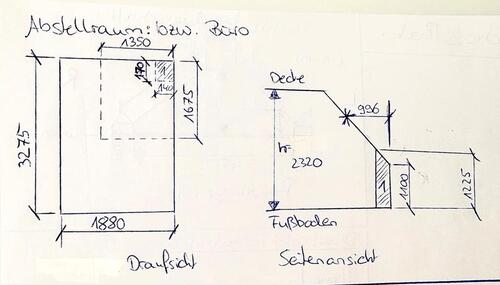 Abstellraum: bzw. Büro
1350
170
1
140
1675
3275
1880
Draufsicht
Decke
996
h=
2320
1
1100
1225
Fußboden
Seitenansicht